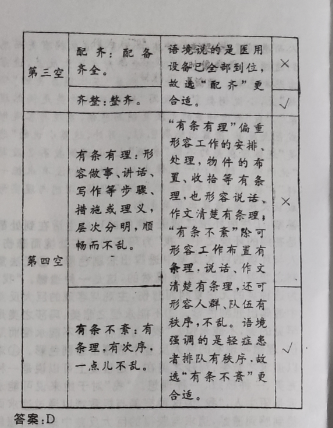 第三空
配齐：配备
齐全。
语境说的是医用
设备已全部到位，
故选“配齐”更
合适。
×
齐整：整齐。
√
第四空
有条有理：形
容做事、讲话、
写作等步骤、
措施或理义，
层次分明，顺
畅而不乱。
“有条有理”偏重
形容工作的安排、
处理，物件的布
置、收拾等有条
理，也形容说话、
作文清楚有条理；
“有条不紊”除可
形容工作布置有
条理，说话、作文
清楚有条理，还可
形容人群、队伍有
秩序，不乱。语境
强调的是轻症患
者排队有秩序，故
选“有条不紊”更
合适。
×
有条不紊：有
条理，有次序，
一点儿不乱。
√
答案：D